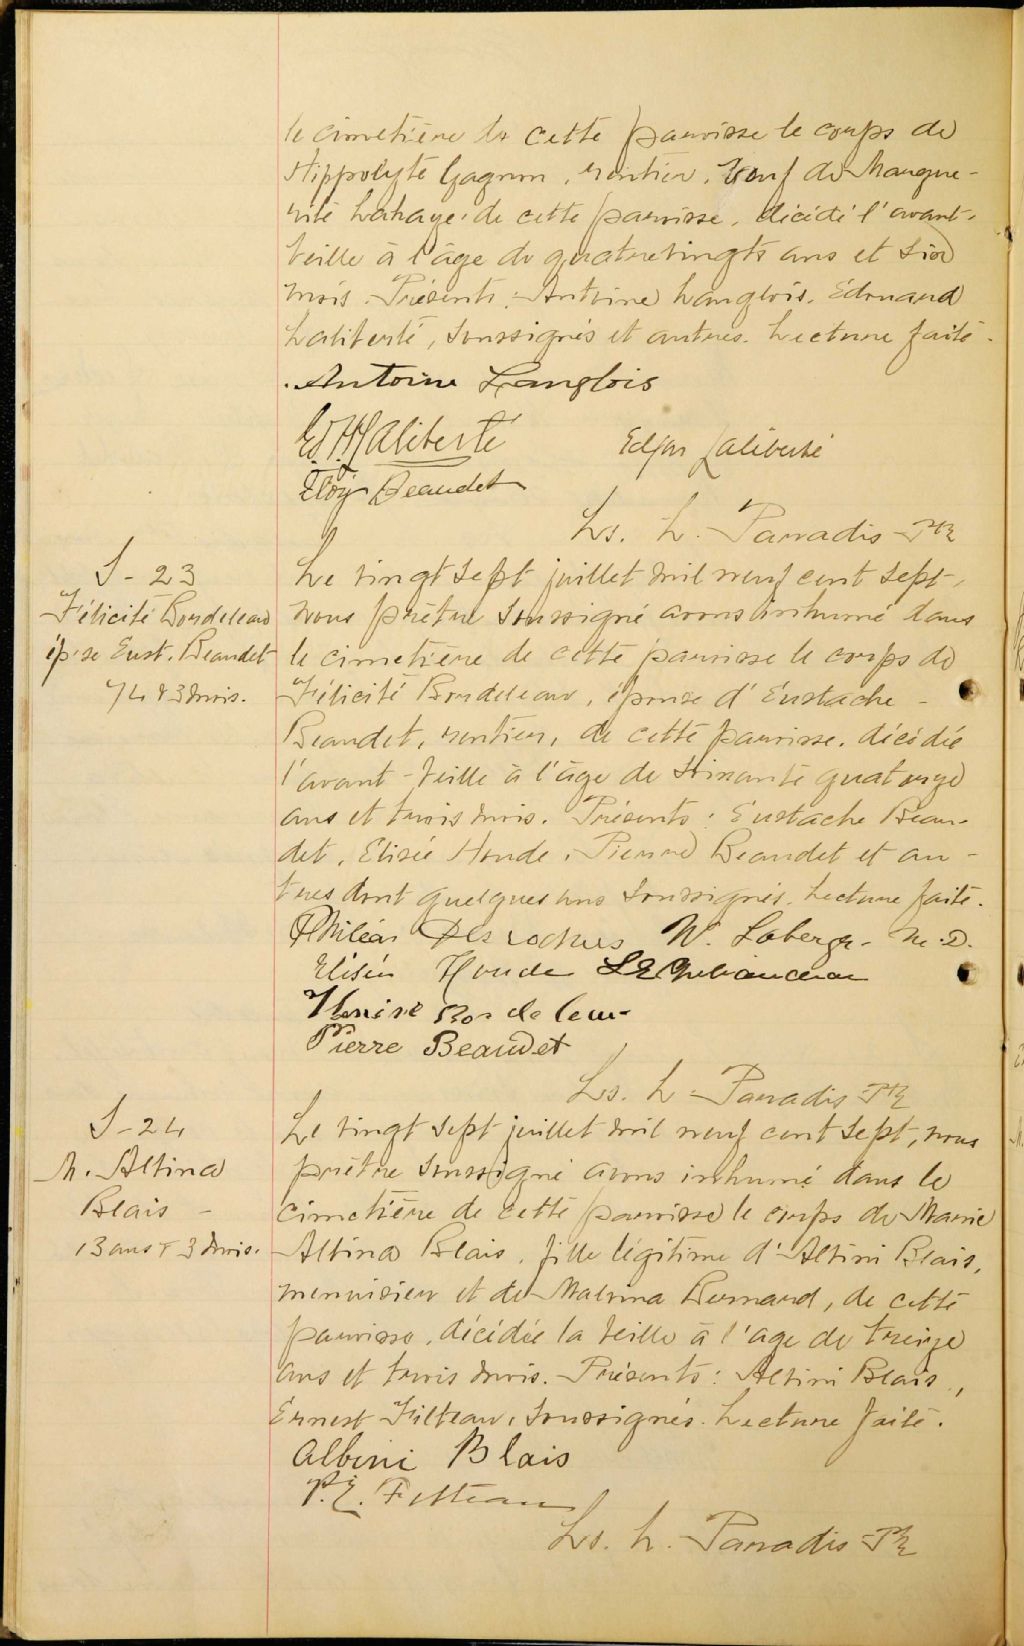 le cimetière de cette paroisse le corps de
Hippolyte Gagnon, rentier, veuf de Margue-
rite Lahaye, de cette paroisse, décédé l'avant-
veille à l'âge de quatrevingts ans et six
mois. Présents: Antoine Langlois, Edouard
Laliberté, soussignés et autres. Lecture faite.
Antoine Langlois
Ed. H. Laliberté
Edgar Laliberté
Eloy Beaudet
Ls. L. Paradis Ptr
S-23
Félicité Bordeleau
ép.se Eust. Beaudet
74 & 3 mois.
Le vingt sept juillet mil neuf cent sept,
nous prêtre soussigné avons inhumé dans
le cimetière de cette paroisse le corps de
Félicité Bordeleau, épouse d'Eustache
Beaudet, rentier, de cette paroisse, décédée
l'avant-veille à l'âge de soixante quatorze
ans et trois mois. Présents: Eustache Beau-
det, Elisée Houde, Pierre Beaudet et au-
tres dont quelques uns soussignés. Lecture faite.
Philéas Desrochers W. Laberge M.D.
Elisée Houde
Bordeleau
Pierre Beaudet
Ls. L. Paradis Ptr
S-24
M. Albina
Blais -
13 ans & 3 mois.
Le vingt sept juillet mil neuf cent sept, nous
prêtre soussigné avons inhumé dans le
cimetière de cette paroisse le corps de Marie
Albina Blais, fille légitime d'Albini Blais,
menuisier et de Malvina Bernard, de cette
paroisse, décédée la veille à l'age de treize
ans et trois mois. Présents: Albini Blais,
Ernest Filteau, soussignés. Lecture faite.
Albini Blais
P.E. Filteau
Ls. L. Paradis Ptr